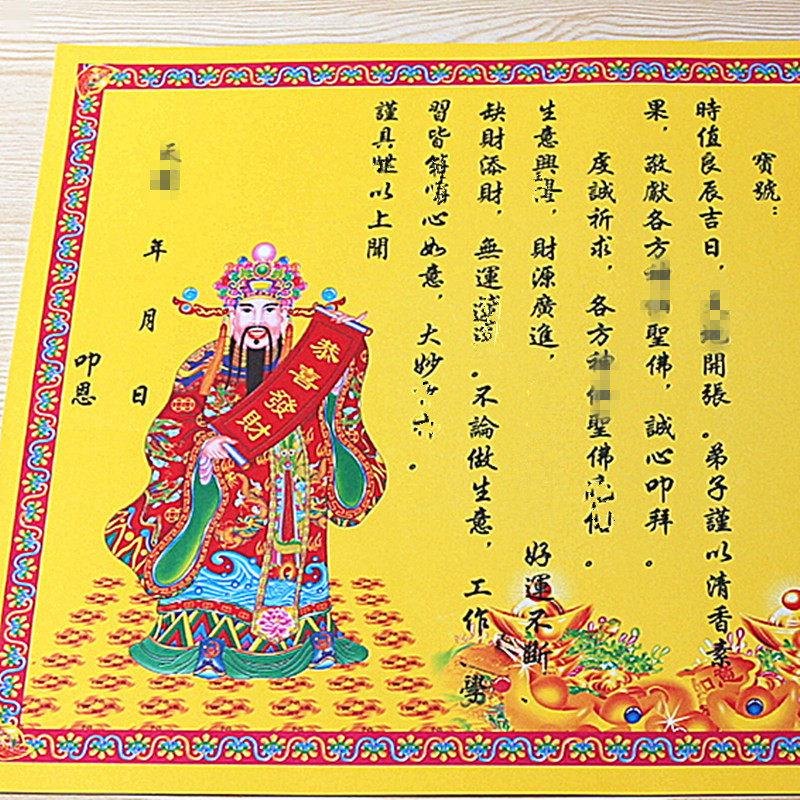 寶號：
時值良辰吉日，開張。弟子謹以清香素
果，敬獻各方聖佛，誠心叩拜。
虔誠祈求，各方神聖佛。
生意興，財源廣進，好運不斷
缺財添財，無運。不論做生意，工作、學
習皆心如意，大妙。
謹具以上聞
恭喜發財
天
年
月
日
叩恩